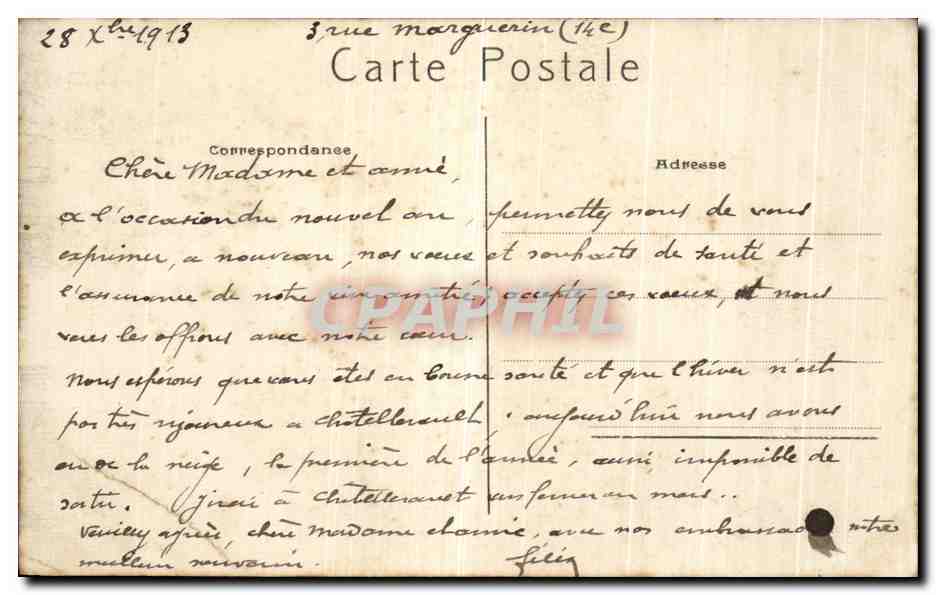 28 Xbre 1913 3, rue Marguerin (14e)
Carte Postale
Correspondance
Adresse
Chère Madame et amie,
a l'occasion du nouvel an, permettez nous de vous
exprimer, a nouveau, nos vœux et souhaits de santé et
l'assurance de notre amitié, acceptez ces vœux, et nous
vous les offrons avec notre cœur.
Nous espérons que vous êtes en bonne santé et que l'hiver n'est
pas très rigoureux a Chatellerault, aujourd'hui nous avons
eu de la neige, la première de l'année, aussi impossible de
sortir. J'irai à Chatellerault vers mars..
Veuillez agréer, chère Madame et amie, avec nos notre
meilleur souvenir.
CPAPHIL